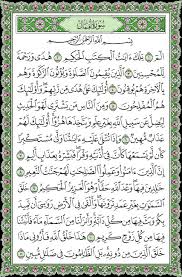 سُورَةُ لُقْمَانَ
بِسْمِ ٱللَّهِ ٱلرَّحْمَٰنِ ٱلرَّحِيمِ
الٓمٓ ۝ تِلْكَ ءَايَٰتُ ٱلْكِتَٰبِ ٱلْحَكِيمِ ۝ هُدًى وَرَحْمَةً
لِّلْمُحْسِنِينَ ۝ ٱلَّذِينَ يُقِيمُونَ ٱلصَّلَوٰةَ وَيُؤْتُونَ ٱلزَّكَوٰةَ وَهُم
بِٱلْءَاخِرَةِ هُمْ يُوقِنُونَ ۝ أُو۟لَٰٓئِكَ عَلَىٰ هُدًى مِّن رَّبِّهِمْ وَأُو۟لَٰٓئِكَ
هُمُ ٱلْمُفْلِحُونَ ۝ وَمِنَ ٱلنَّاسِ مَن يَشْتَرِى لَهْوَ ٱلْحَدِيثِ
لِيُضِلَّ عَن سَبِيلِ ٱللَّهِ بِغَيْرِ عِلْمٍ وَيَتَّخِذَهَا هُزُوًا أُو۟لَٰٓئِكَ لَهُمْ
عَذَابٌ مُّهِينٌ ۝ وَإِذَا تُتْلَىٰ عَلَيْهِ ءَايَٰتُنَا وَلَّىٰ مُسْتَكْبِرًا
كَأَن لَّمْ يَسْمَعْهَا كَأَنَّ فِىٓ أُذُنَيْهِ وَقْرًا فَبَشِّرْهُ بِعَذَابٍ أَلِيمٍ ۝
إِنَّ ٱلَّذِينَ ءَامَنُوا۟ وَعَمِلُوا۟ ٱلصَّٰلِحَٰتِ لَهُمْ جَنَّٰتُ ٱلنَّعِيمِ ۝
خَٰلِدِينَ فِيهَا وَعْدَ ٱللَّهِ حَقًّا وَهُوَ ٱلْعَزِيزُ ٱلْحَكِيمُ ۝ خَلَقَ
ٱلسَّمَٰوَٰتِ بِغَيْرِ عَمَدٍ تَرَوْنَهَا وَأَلْقَىٰ فِى ٱلْأَرْضِ رَوَٰسِىَ أَن تَمِيدَ
بِكُمْ وَبَثَّ فِيهَا مِن كُلِّ دَآبَّةٍ وَأَنزَلْنَا مِنَ ٱلسَّمَآءِ مَآءً فَأَنۢبَتْنَا
فِيهَا مِن كُلِّ زَوْجٍ كَرِيمٍ ۝ هَٰذَا خَلْقُ ٱللَّهِ فَأَرُونِى مَاذَا
خَلَقَ ٱلَّذِينَ مِن دُونِهِۦ بَلِ ٱلظَّٰلِمُونَ فِى ضَلَٰلٍ مُّبِينٍ ۝